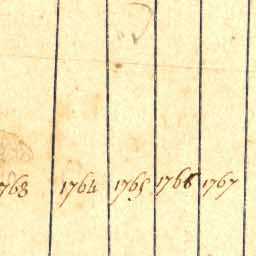 1763 1764 1765 1766 1767